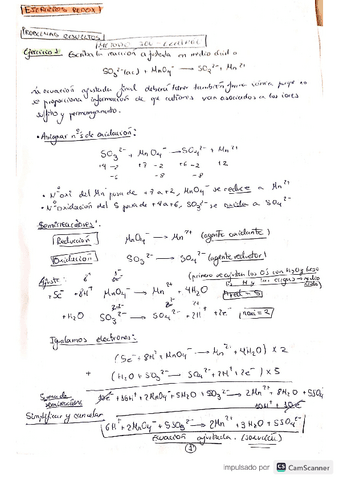 EJERCICIOS REDOX I
PROBLEMAS RESUELTOS
Ejercicio 1: Escriba la reacción ajustada en medio ácido
SO₃²⁻(ac) + MnO₄⁻ → SO₄²⁻ + Mn²⁺
La ecuación ajustada final deberá estar también forma iónica, pues no
se proporciona información de qué cationes van asociados a los iones
sulfito y permanganato.
• Asignar nºs de oxidación:
SO₃²⁻ + MnO₄⁻ → SO₄²⁻ + Mn²⁺
+4 -2 +7 -2 +6 -2 +2
-6 -8 -8
• Nº oxi del Mn pasa de +7 a +2, MnO₄⁻ se reduce a Mn²⁺
• Nº oxidación del S pasa de +4 a +6, SO₃²⁻ se oxida a SO₄²⁻
Semirreacciones:
Reducción MnO₄⁻ → Mn²⁺ (agente oxidante)
Oxidación SO₃²⁻ → SO₄²⁻ (agente reductor)
Ajuste: (primero se ajustan los O's con H₂O
+5e⁻ +8H⁺ MnO₄⁻ → Mn²⁺ + 4H₂O
+H₂O SO₃²⁻ → SO₄²⁻ + 2H⁺ + 2e⁻
Igualamos electrones:
(5e⁻ + 8H⁺ + MnO₄⁻ → Mn²⁺ + 4H₂O) x 2
+ (H₂O + SO₃²⁻ → SO₄²⁻ + 2H⁺ + 2e⁻) x 5
10e⁻ + 16H⁺ + 2MnO₄⁻ + 5H₂O + 5SO₃²⁻ → 2Mn²⁺ + 8H₂O + 5SO₄
10H⁺ + 10e⁻
Simplificar y cancelar
6H⁺ + 2MnO₄⁻ + 5SO₃²⁻ → 2Mn²⁺ + 3H₂O + 5SO₄²⁻
Ecuación ajustada. (solución)
1
impulsado por CS CamScanner